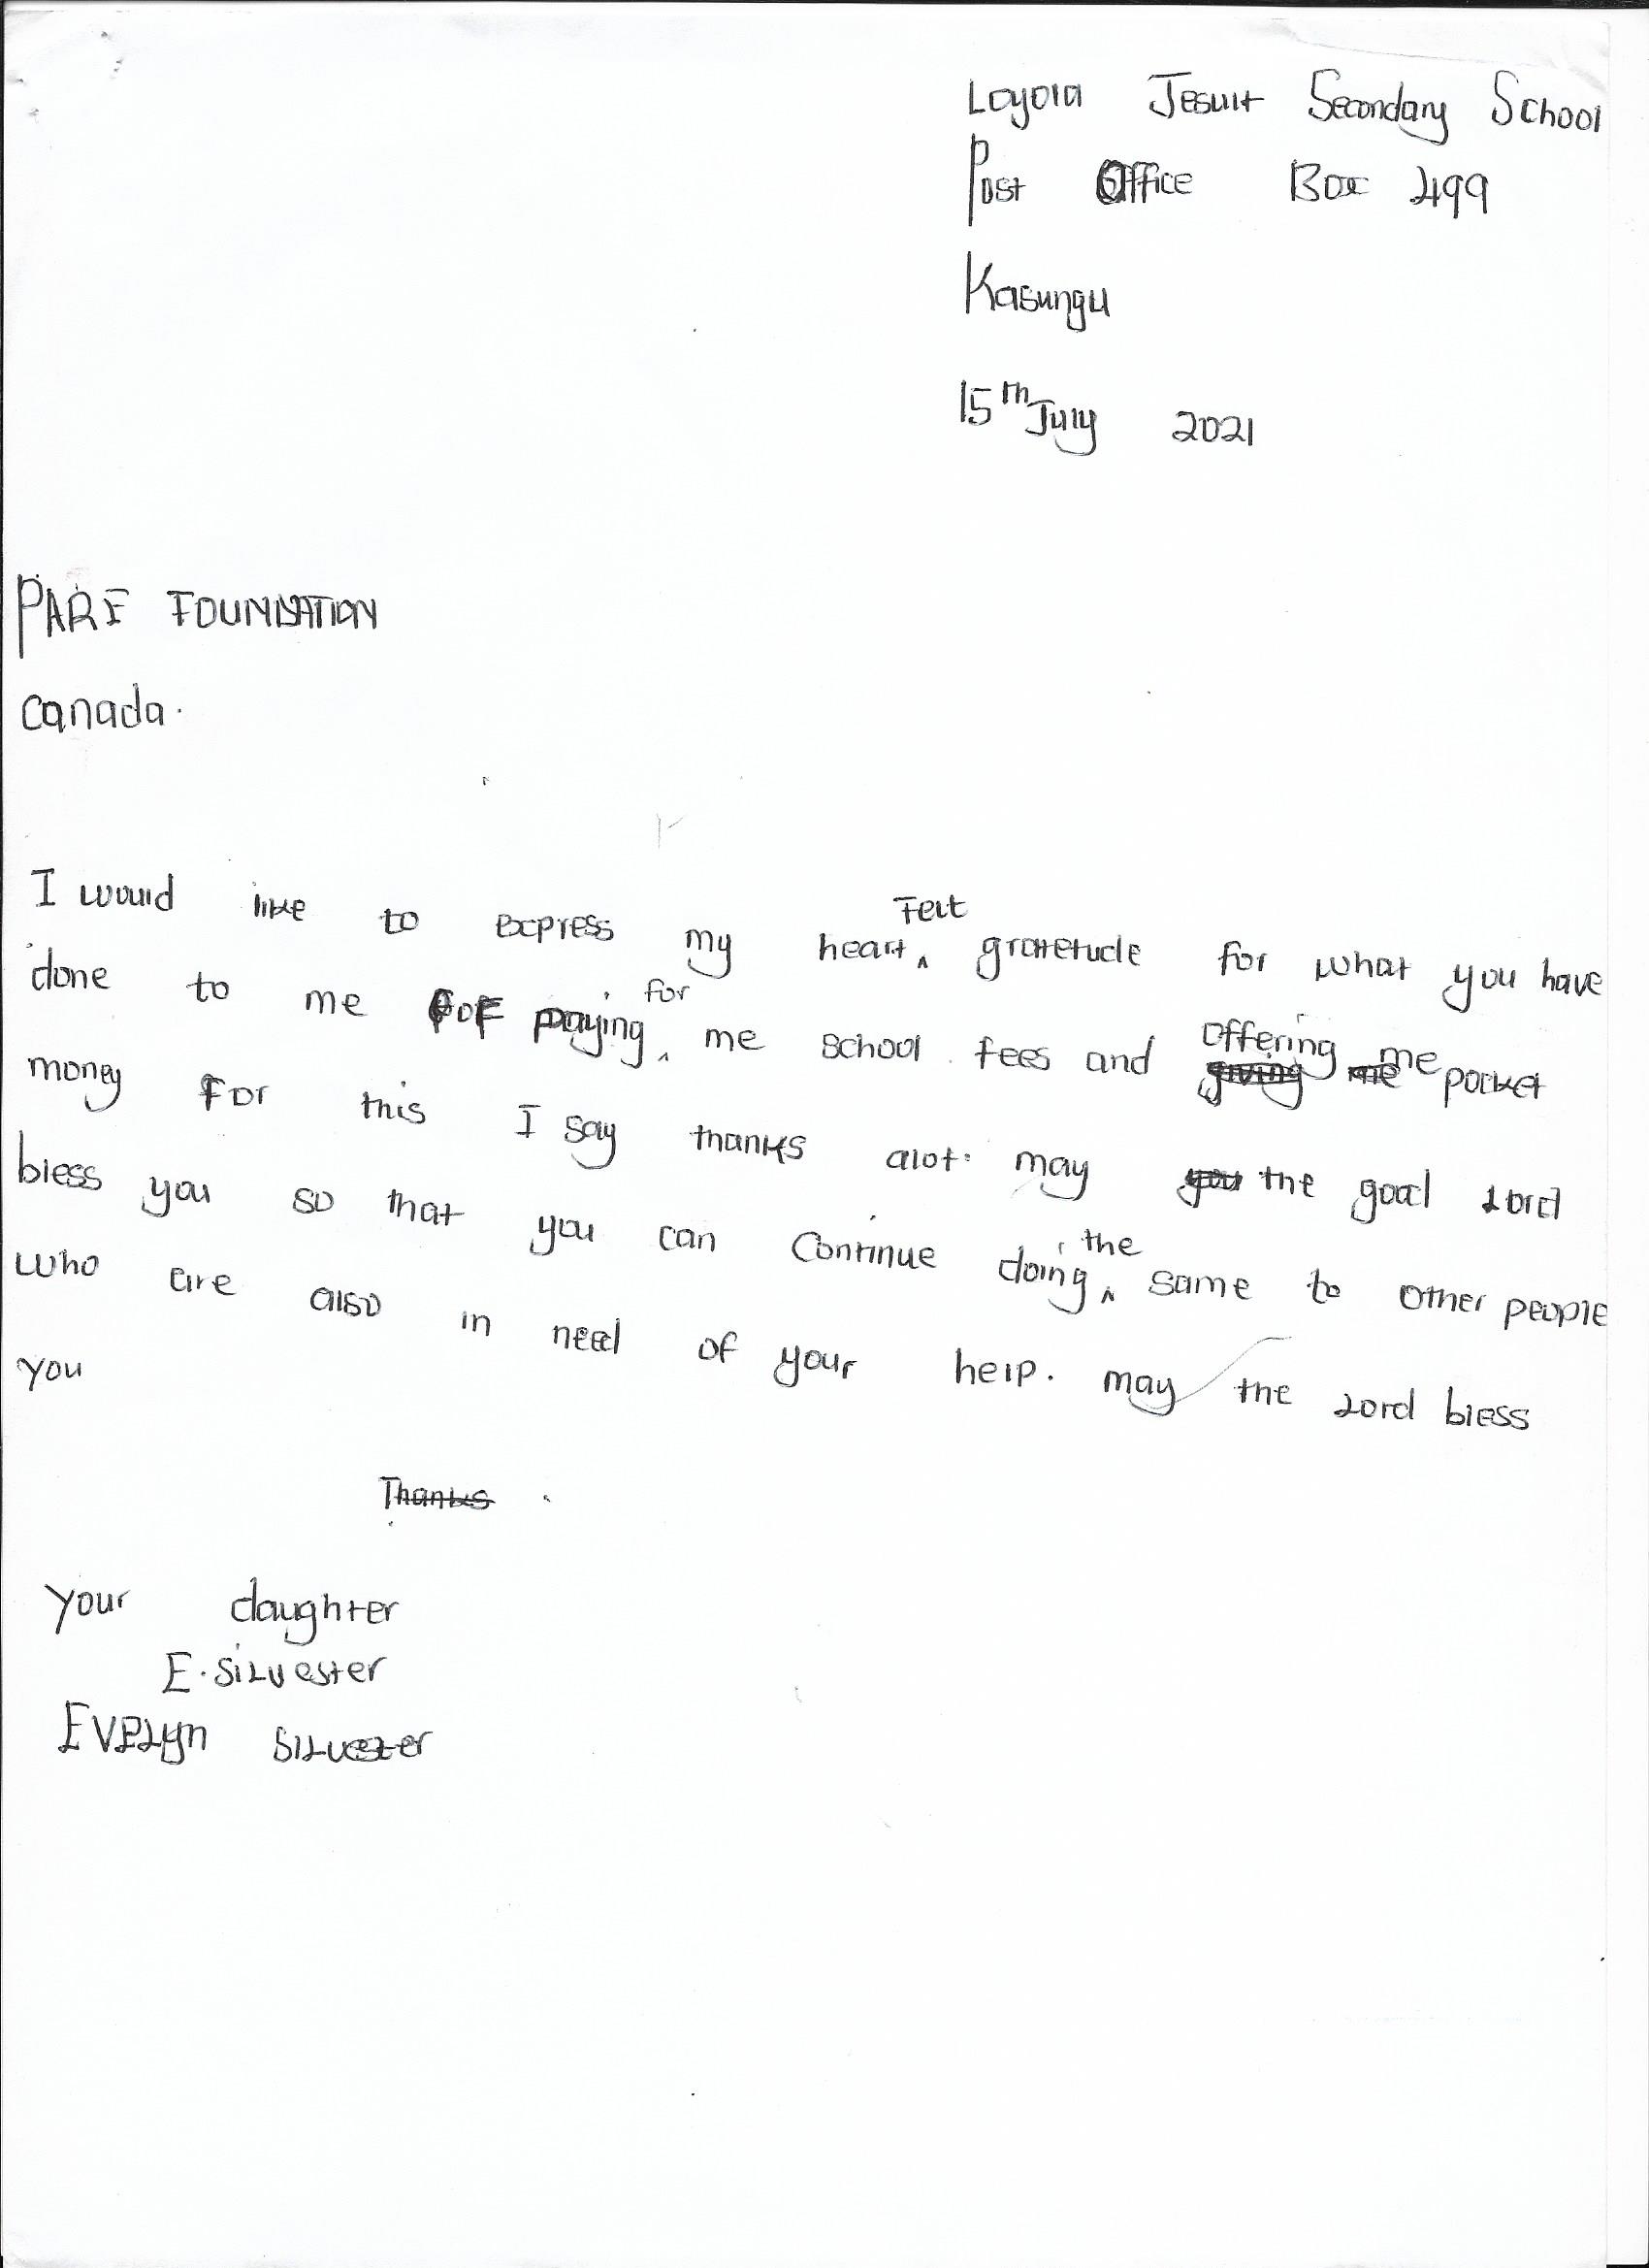 Loyola Jesuit Secondary School
Post Office Box 499
Kasungu
15th July 2021
PARF FOUNDATION
Canada.
I would like to express my heart felt gratetude for what you have
done to me for paying for me school fees and offering me pocket
money For this I say thanks alot. may the good Lord
bless you so that you can Continue doing the same to other people
who are also in need of your help. may the Lord bless
you
Thanks
Your daughter
E. Silvester
Evelyn Silvester